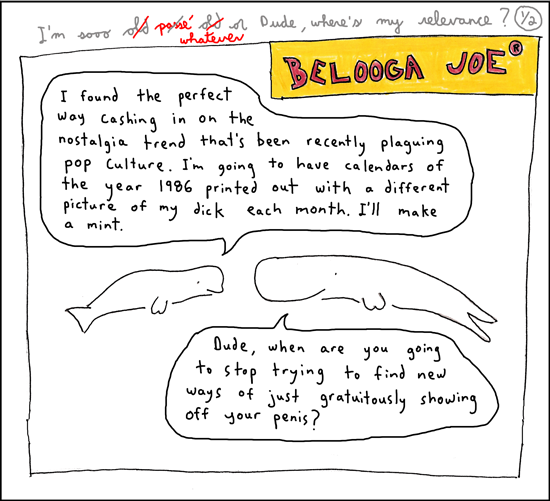 I'm sooo old passé old or Dude, where's my relevance? 1/2
whatever
BELOOGA JOE®
I found the perfect
way cashing in on the
nostalgia trend that's been recently plaguing
pop culture. I'm going to have calendars of
the year 1986 printed out with a different
picture of my dick each month. I'll make
a mint.
Dude, when are you going
to stop trying to find new
ways of just gratuitously showing
off your penis?